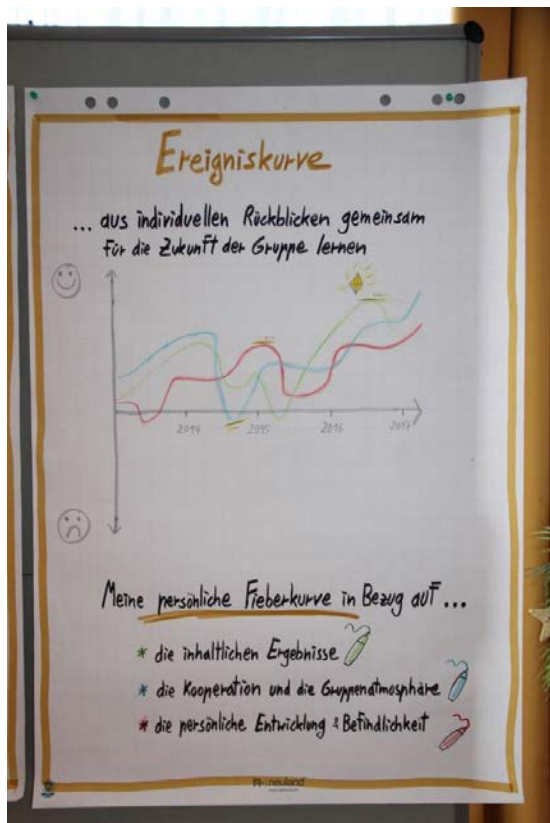 Ereigniskurve
... aus individuellen Rückblicken gemeinsam
für die Zukunft der Gruppe lernen
2014 2015 2016 2017
Meine persönliche Fieberkurve in Bezug auf ...
* die inhaltlichen Ergebnisse
* die Kooperation und die Gruppenatmosphäre
* die persönliche Entwicklung & Befindlichkeit
neuland